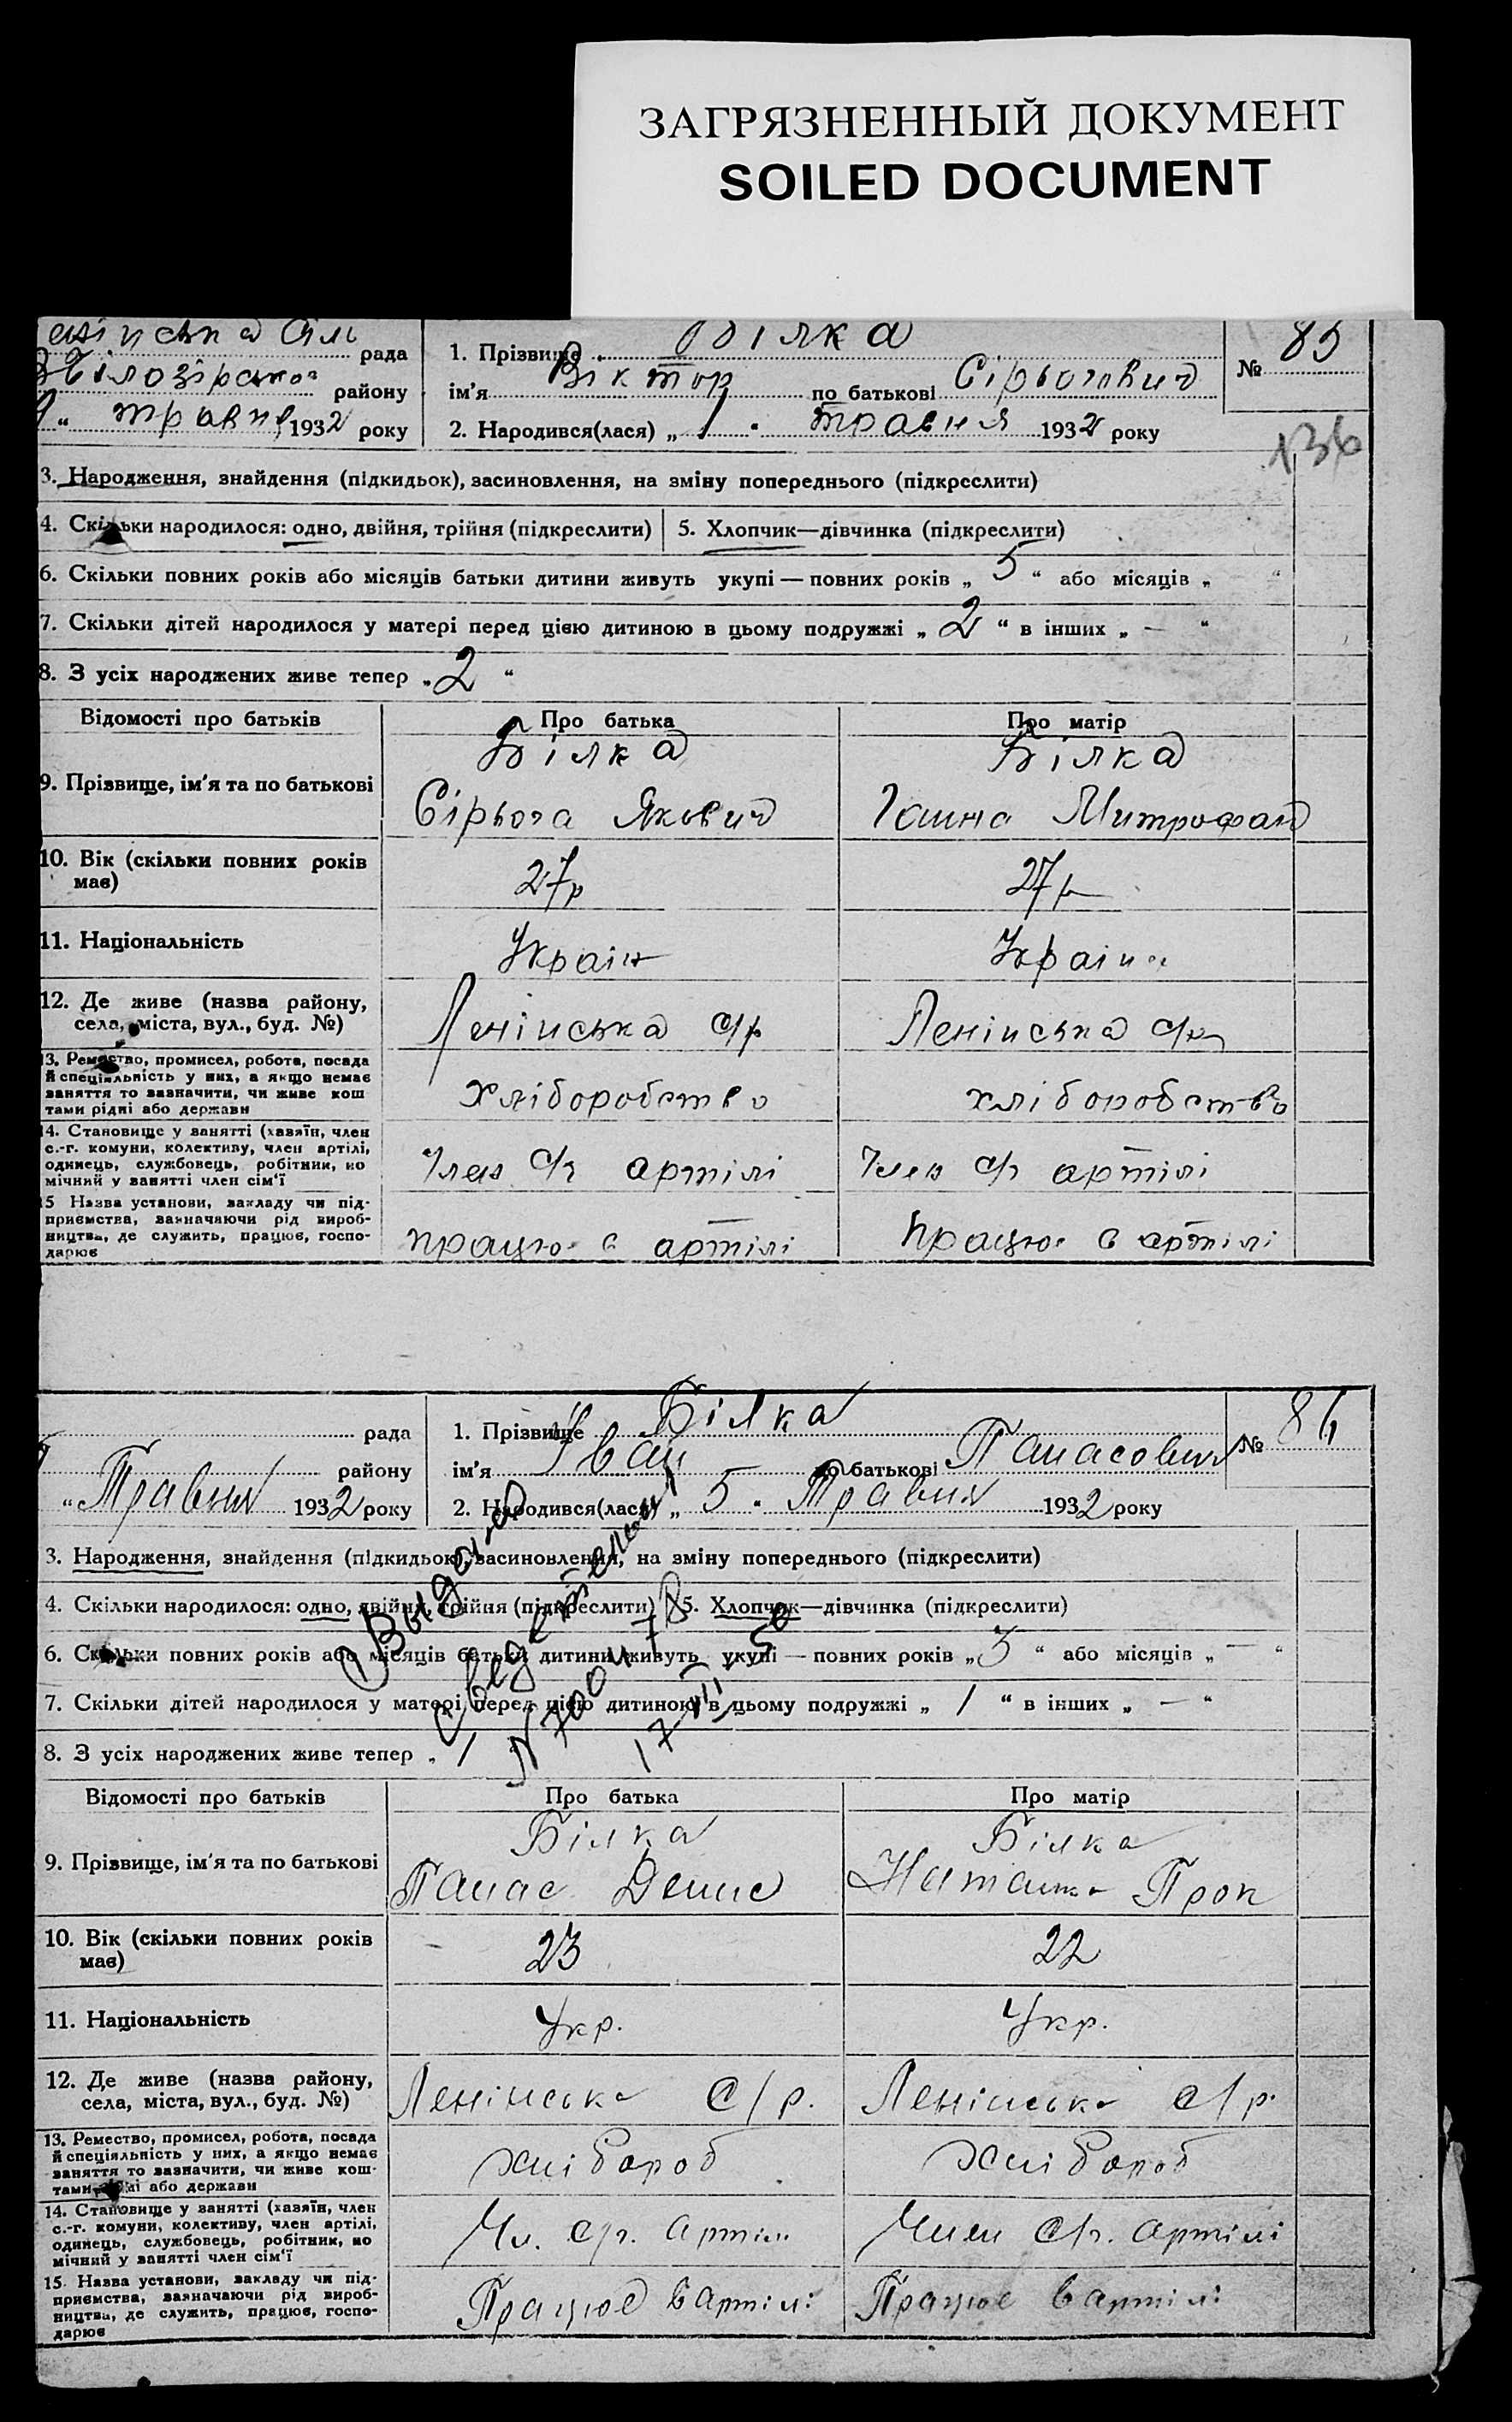 ЗАГРЯЗНЕННЫЙ ДОКУМЕНТ
SOILED DOCUMENT
рада
району
" травня 1932 року
1. Прізвище Білка
ім'я Віктор по батькові Сірьогович
2. Народився(лася) „ 1 " травня 1932 року
№ 85
136
3. Народження, знайдення (підкидьок), засиновлення, на зміну попереднього (підкреслити)
4. Скільки народилося: одно, двійня, трійня (підкреслити)
5. Хлопчик—дівчинка (підкреслити)
6. Скільки повних років або місяців батьки дитини живуть укупі — повних років „ 5 “ або місяців „ “
7. Скільки дітей народилося у матері перед цією дитиною в цьому подружжі „ 2 “ в інших „ — “
8. З усіх народжених живе тепер „ 2 “
Відомості про батьків
Про батька
Про матір
9. Прізвище, ім'я та по батькові
Білка
Сірьога Якович
Білка
Ганна Митрофан
10. Вік (скільки повних років
має)
27р
27р
11. Національність
Україн
Україн
12. Де живе (назва району,
села, міста, вул., буд. №)
Ленінська с/р
Ленінська с/р
13. Ремество, промисел, робота, посада
й спеціяльність у них, а якщо немає
заняття то зазначити, чи живе кош
тами рідні або держави
хліборобство
хліборобство
14. Становище у занятті (хазяїн, член
с.-г. комуни, колективу, член артілі,
одинець, службовець, робітник, по
мічний у занятті член сім'ї
Член с/г артілі
Член с/г артілі
15 Назва установи, закладу чи під-
приємства, зазначаючи рід вироб-
ництва, де служить, працює, госпо-
дарює
працює в артілі
працює в артілі
рада
району
„ Травня 1932 року
1. Прізвище Білка
ім'я Іван по батькові Панасович
2. Народився(лася) „ 5 " Травня 1932 року
№ 86
3. Народження, знайдення (підкидьок), засиновлення, на зміну попереднього (підкреслити)
4. Скільки народилося: одно, двійня, трійня (підкреслити)
5. Хлопчик—дівчинка (підкреслити)
6. Скільки повних років або місяців батьки дитини живуть укупі — повних років „ 3 “ або місяців „ — “
7. Скільки дітей народилося у матері перед цією дитиною в цьому подружжі „ 1 “ в інших „ — “
8. З усіх народжених живе тепер „ 1
Выдано
17 VII 50
Відомості про батьків
Про батька
Про матір
9. Прізвище, ім'я та по батькові
Білка
Панас Денис
Білка
Наталка Прок
10. Вік (скільки повних років
має)
23
22
11. Національність
Укр.
Укр.
12. Де живе (назва району,
села, міста, вул., буд. №)
Ленінська С/р.
Ленінська С/р.
13. Ремество, промисел, робота, посада
й спеціяльність у них, а якщо немає
заняття то зазначити, чи живе кош-
тами рідні або держави
Хлібороб
Хлібороб
14. Становище у занятті (хазяїн, член
с.-г. комуни, колективу, член артілі,
одинець, службовець, робітник, по
мічний у занятті член сім'ї
Чл. С/г. артілі
Член С/г. артілі
15. Назва установи, закладу чи під-
приємства, зазначаючи рід вироб-
ництва, де служить, працює, госпо-
дарює
Працює в артілі
Працює в артілі